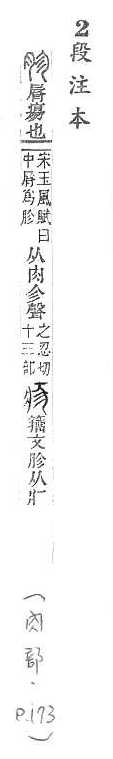 2段注本
胗脣瘍也宋玉風賦曰中脣爲胗从肉㐱聲之忍切十三部籒文胗从疒
(肉部.P.173)